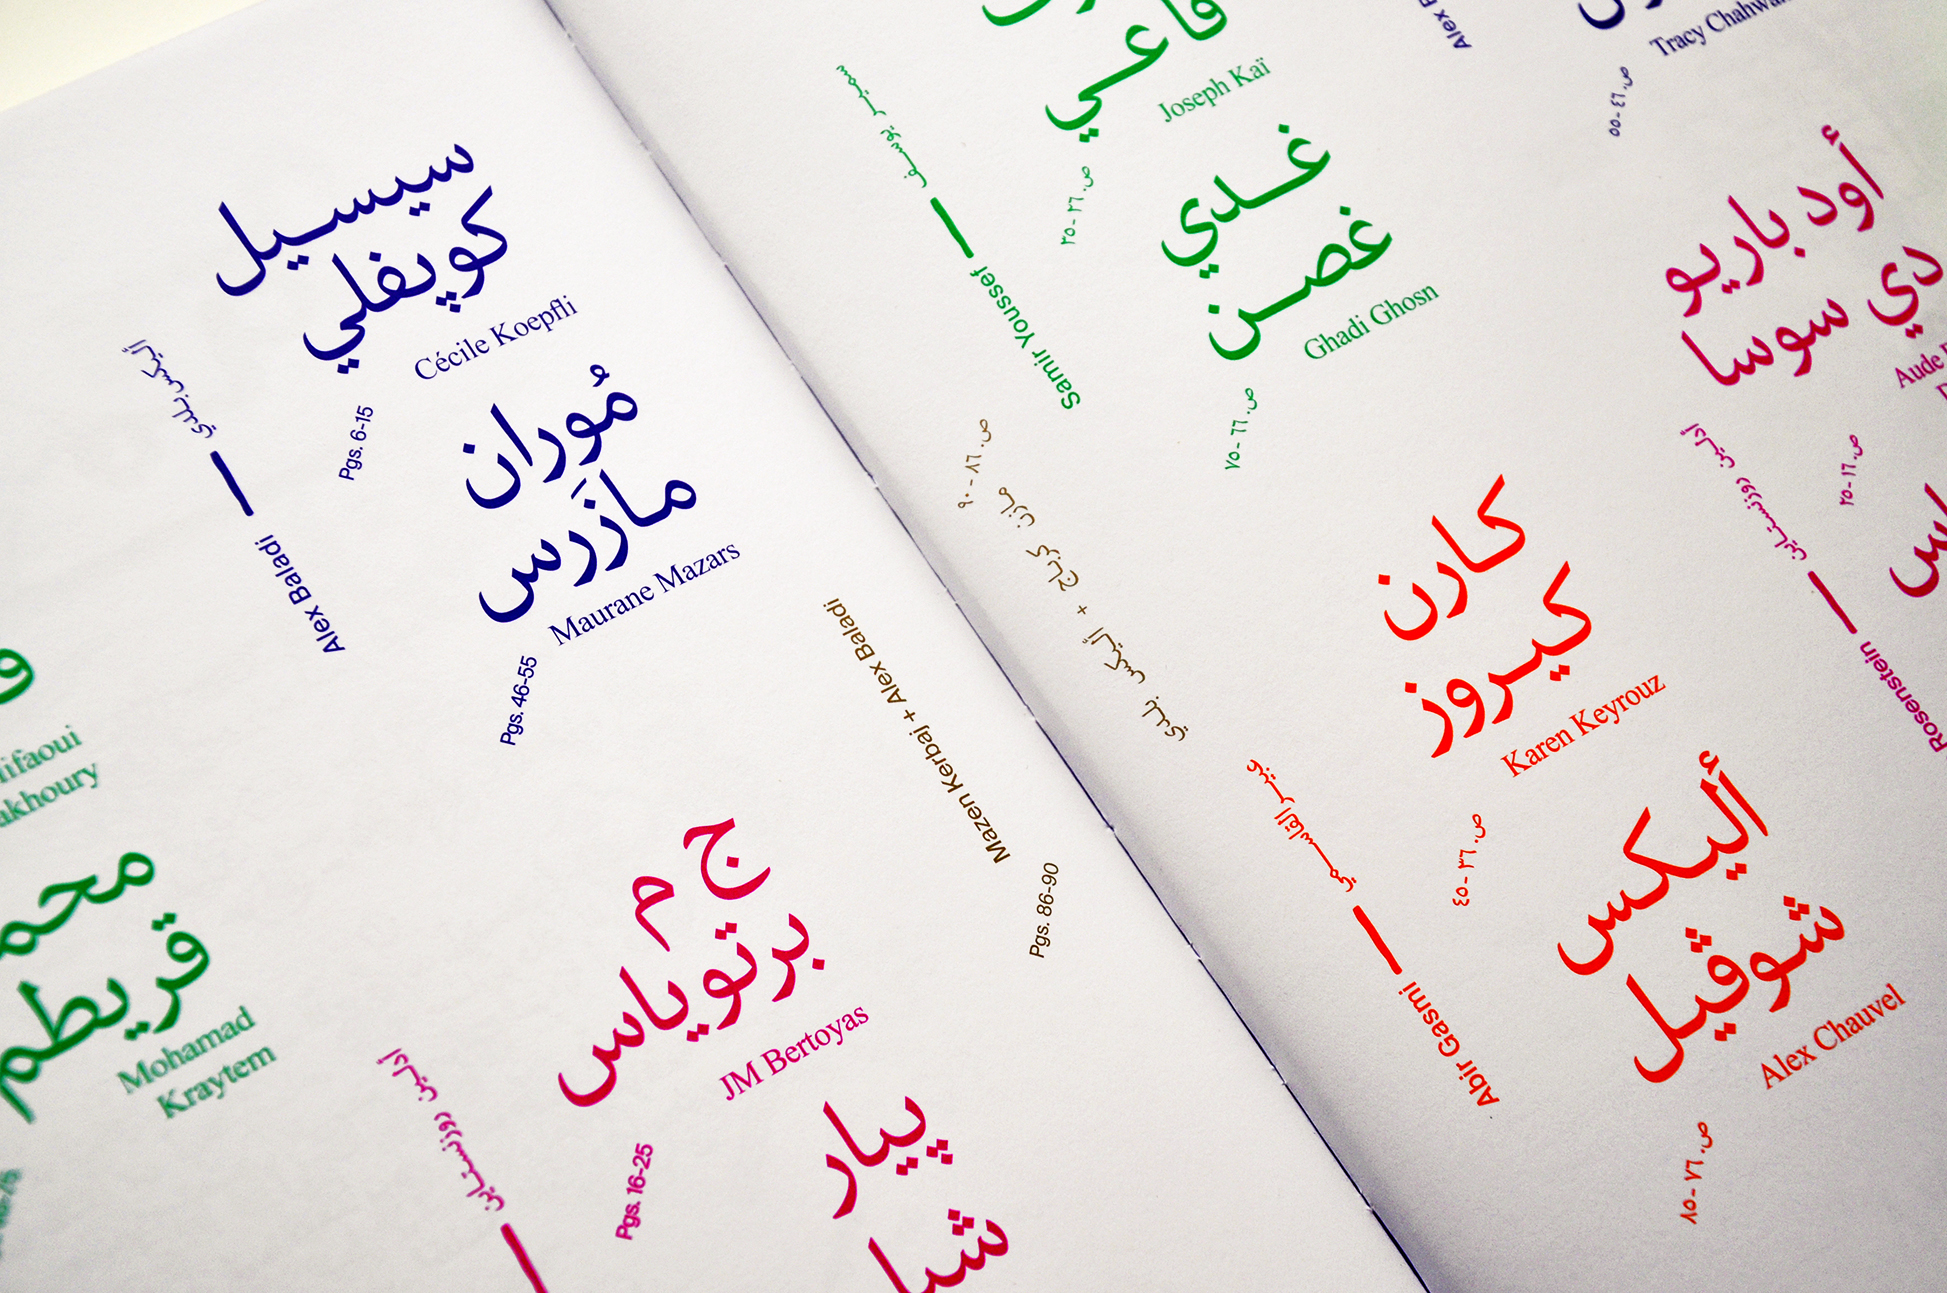 سيسيل
كوپفلي
Cécile Koepfli
Pgs. 6-15
أليكس بلدي
Alex Baladi
مُوران
مازَرس
Maurane Mazars
Pgs. 46-55
Mazen Kerbaj + Alex Baladi
Pgs. 86-90
akhoury
محم
قريطم
Mohamad
Kraytem
ج م
برتوياس
JM Bertoyas
Pgs. 16-25
أدلين روزنستاين
پيار
فاعي
Joseph Kaï
ص. ٢٦ - ٣٥
سمير يوسف
Samir Youssef
غدي
غصن
Ghadi Ghosn
ص. ٦٦ - ٧٥
ص. ٨٦ - ٩٠
مازن كرباج + أليكس بلدي
Alex
Tracy
ص. ٤٦ - ٥٥
أود باريو
دي سوسا
Aude
ص. ١٦ - ٢٥
أدلين روزنستاين
Rosenstein
كارن
كيروز
Karen Keyrouz
ص. ٣٦ - ٤٥
عبير القاسمي
Abir Gasmi
أليكس
شوڤيل
Alex Chauvel
ص. ٧٦ - ٨٥